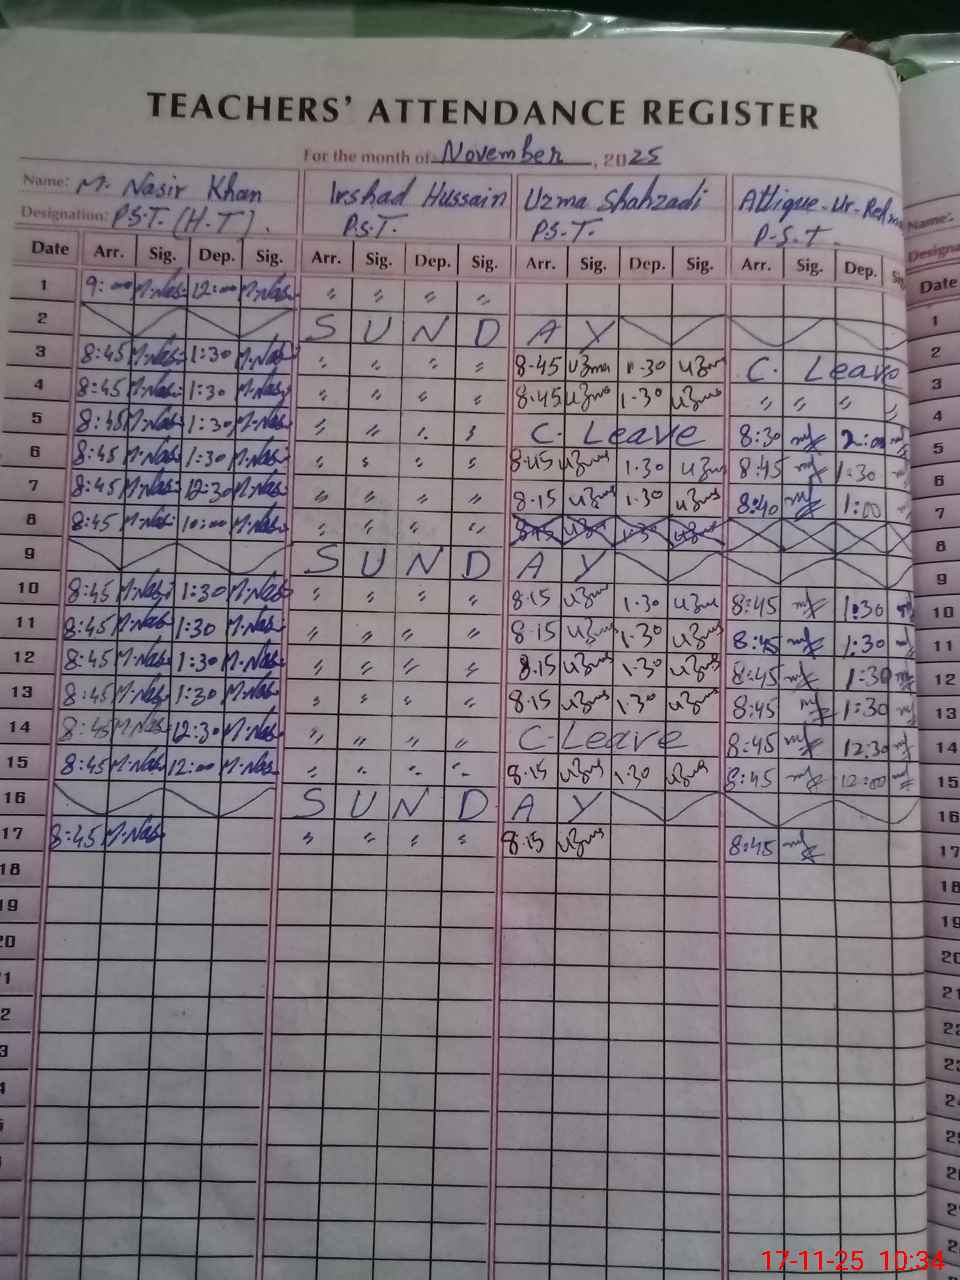 TEACHERS' ATTENDANCE REGISTER
For the month of November, 2025
Name: M. Nasir Khan Irshad Hussain Uzma Shahzadi Attique-Ur-Reh Name:
Designation: P.S.T. (H.T). P.S.T. P.S.T. P.S.T. Designa
Date Arr. Sig. Dep. Sig. Arr. Sig. Dep. Sig. Arr. Sig. Dep. Sig. Arr. Sig. Dep. Sig Date
1 9:00 M.Nas 12:00 M.Nas 〃 〃 〃 〃 1
2 S U N D A Y 2
3 8:45 M.Nas 1:30 M.Nas 〃 〃 〃 〃 8.45 Uzma 1.30 Uzma C. Leave 3
4 8:45 M.Nas 1:30 M.Nas 〃 〃 〃 〃 8.45 Uzma 1.30 Uzma 〃 〃 〃 〃 4
5 8:45 M.Nas 1:30 M.Nas 〃 〃 〃 〃 C. Leave 8:30 2:00 5
6 8:45 M.Nas 1:30 M.Nas 〃 〃 〃 〃 8.45 Uzma 1.30 Uzma 8:45 1:30 6
7 8:45 M.Nas 12:30 M.Nas 〃 〃 〃 〃 8.15 Uzma 1.30 Uzma 8:40 1:00 7
8 8:45 M.Nas 10:00 M.Nas 〃 〃 〃 〃 8
9 S U N D A Y 9
10 8:45 M.Nas 1:30 M.Nas 〃 〃 〃 〃 8.15 Uzma 1.30 Uzma 8:45 1:30 10
11 8:45 M.Nas 1:30 M.Nas 〃 〃 〃 〃 8.15 Uzma 1.30 Uzma 8:45 1:30 11
12 8:45 M.Nas 1:30 M.Nas 〃 〃 〃 〃 8.15 Uzma 1.30 Uzma 8:45 1:30 12
13 8:45 M.Nas 1:30 M.Nas 〃 〃 〃 〃 8.15 Uzma 1.30 Uzma 8:45 1:30 13
14 8:45 M.Nas 12:30 M.Nas 〃 〃 〃 〃 C. Leave 8:45 12:30 14
15 8:45 M.Nas 12:00 M.Nas 〃 〃 〃 〃 8.15 Uzma 1.30 Uzma 8:45 12:00 15
16 S U N D A Y 16
17 8:45 M.Nas 〃 〃 〃 〃 8.15 Uzma 8:45 17
18 18
19 19
20 20
1 21
2 22
3 23
4 24
25
2
2
2
17-11-25 10:34